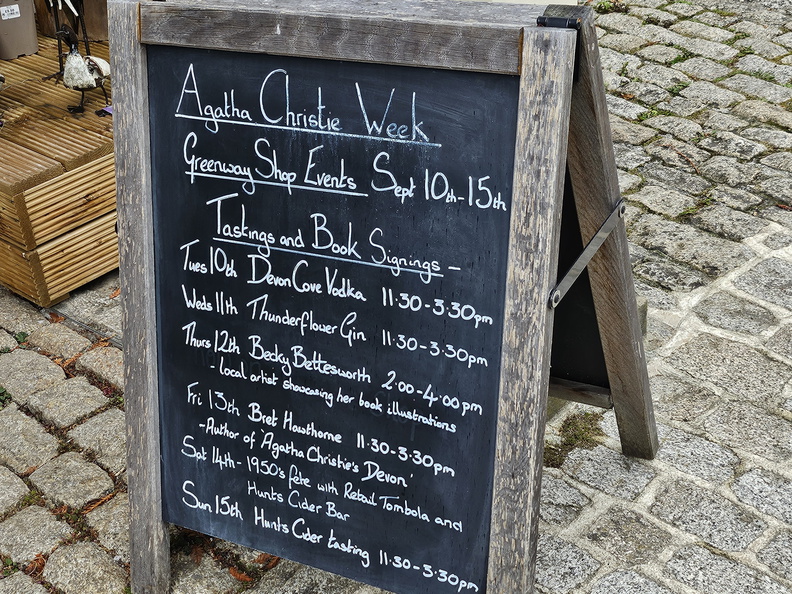 Agatha Christie Week
Greenway Shop Events Sept 10th-15th
Tastings and Book Signings -
Tues 10th Devon Cove Vodka 11.30-3.30pm
Weds 11th Thunderflower Gin 11.30-3.30pm
Thurs 12th Becky Bettesworth 2.00-4.00pm
- local artist showcasing her book illustrations
Fri 13th Bret Hawthorne 11.30-3.30pm
-Author of Agatha Christie's Devon'
Sat 14th- 1950's fête with Retail Tombola and
Hunts Cider Bar
Sun 15th Hunts Cider tasting 11.30-3.30pm